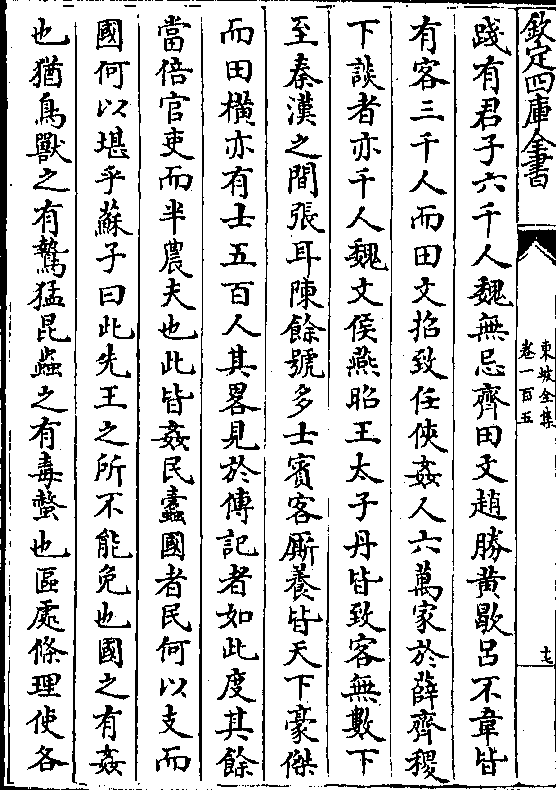 欽定四庫全書
東坡全集
卷一百五
十七
踐有君子六千人魏無忌齊田文趙勝黃歇呂不韋皆
有客三千人而田文招致任俠姦人六萬家於薛齊稷
下談者亦千人魏文侯燕昭王太子丹皆致客無數下
至秦漢之間張耳陳餘號多士賓客厮養皆天下豪傑
而田橫亦有士五百人其畧見於傳記者如此度其餘
當倍官吏而半農夫也此皆姦民蠧國者民何以支而
國何以堪乎蘇子曰此先王之所不能免也國之有姦
也猶鳥獸之有鷙猛昆蟲之有毒螫也區處條理使各